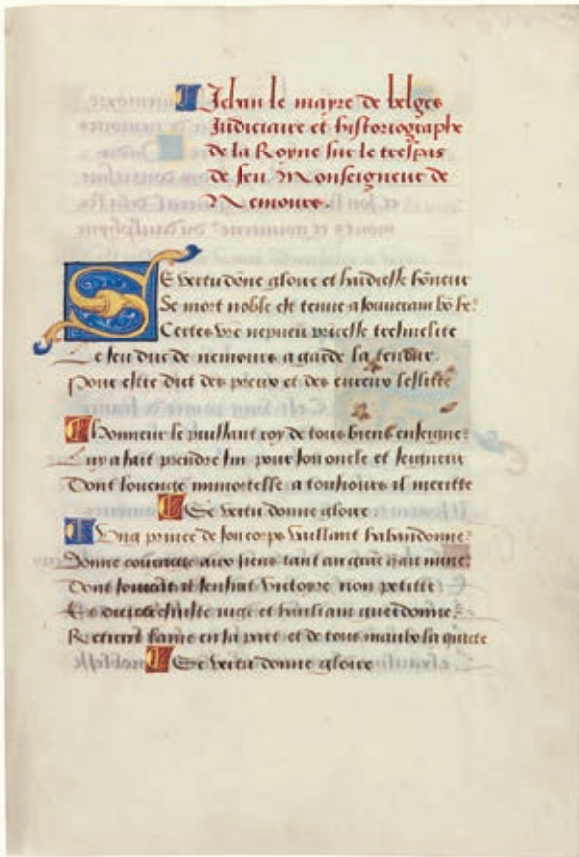 Jehan le mayre de belges
Indiciaire et historiographe
de la Royne sur le trespas
de feu Monseigneur de
Nemours.
Se vertu done gloire et hardiesse honeur
Se mort noble est tenue a souverain bo he
Certes vre nepveu
Le feu duc de nemours a garde la teneur
Pour estre dict des preux et des
Lhonneur le puissant roy de tous biens enseigne
Luy a fait prendre fin pour son oncle et seigneur
Dont louenge immortelle a tousiours il meritte
Se vertu donne gloire
Ung prince de son corps vaillant habandonne
Donne couraige aux siens tant
Dont victoire non petitte
iuge et hault guerdonne
Retient lame en sa part et de tous maulx la quicte
Se vertu donne gloire